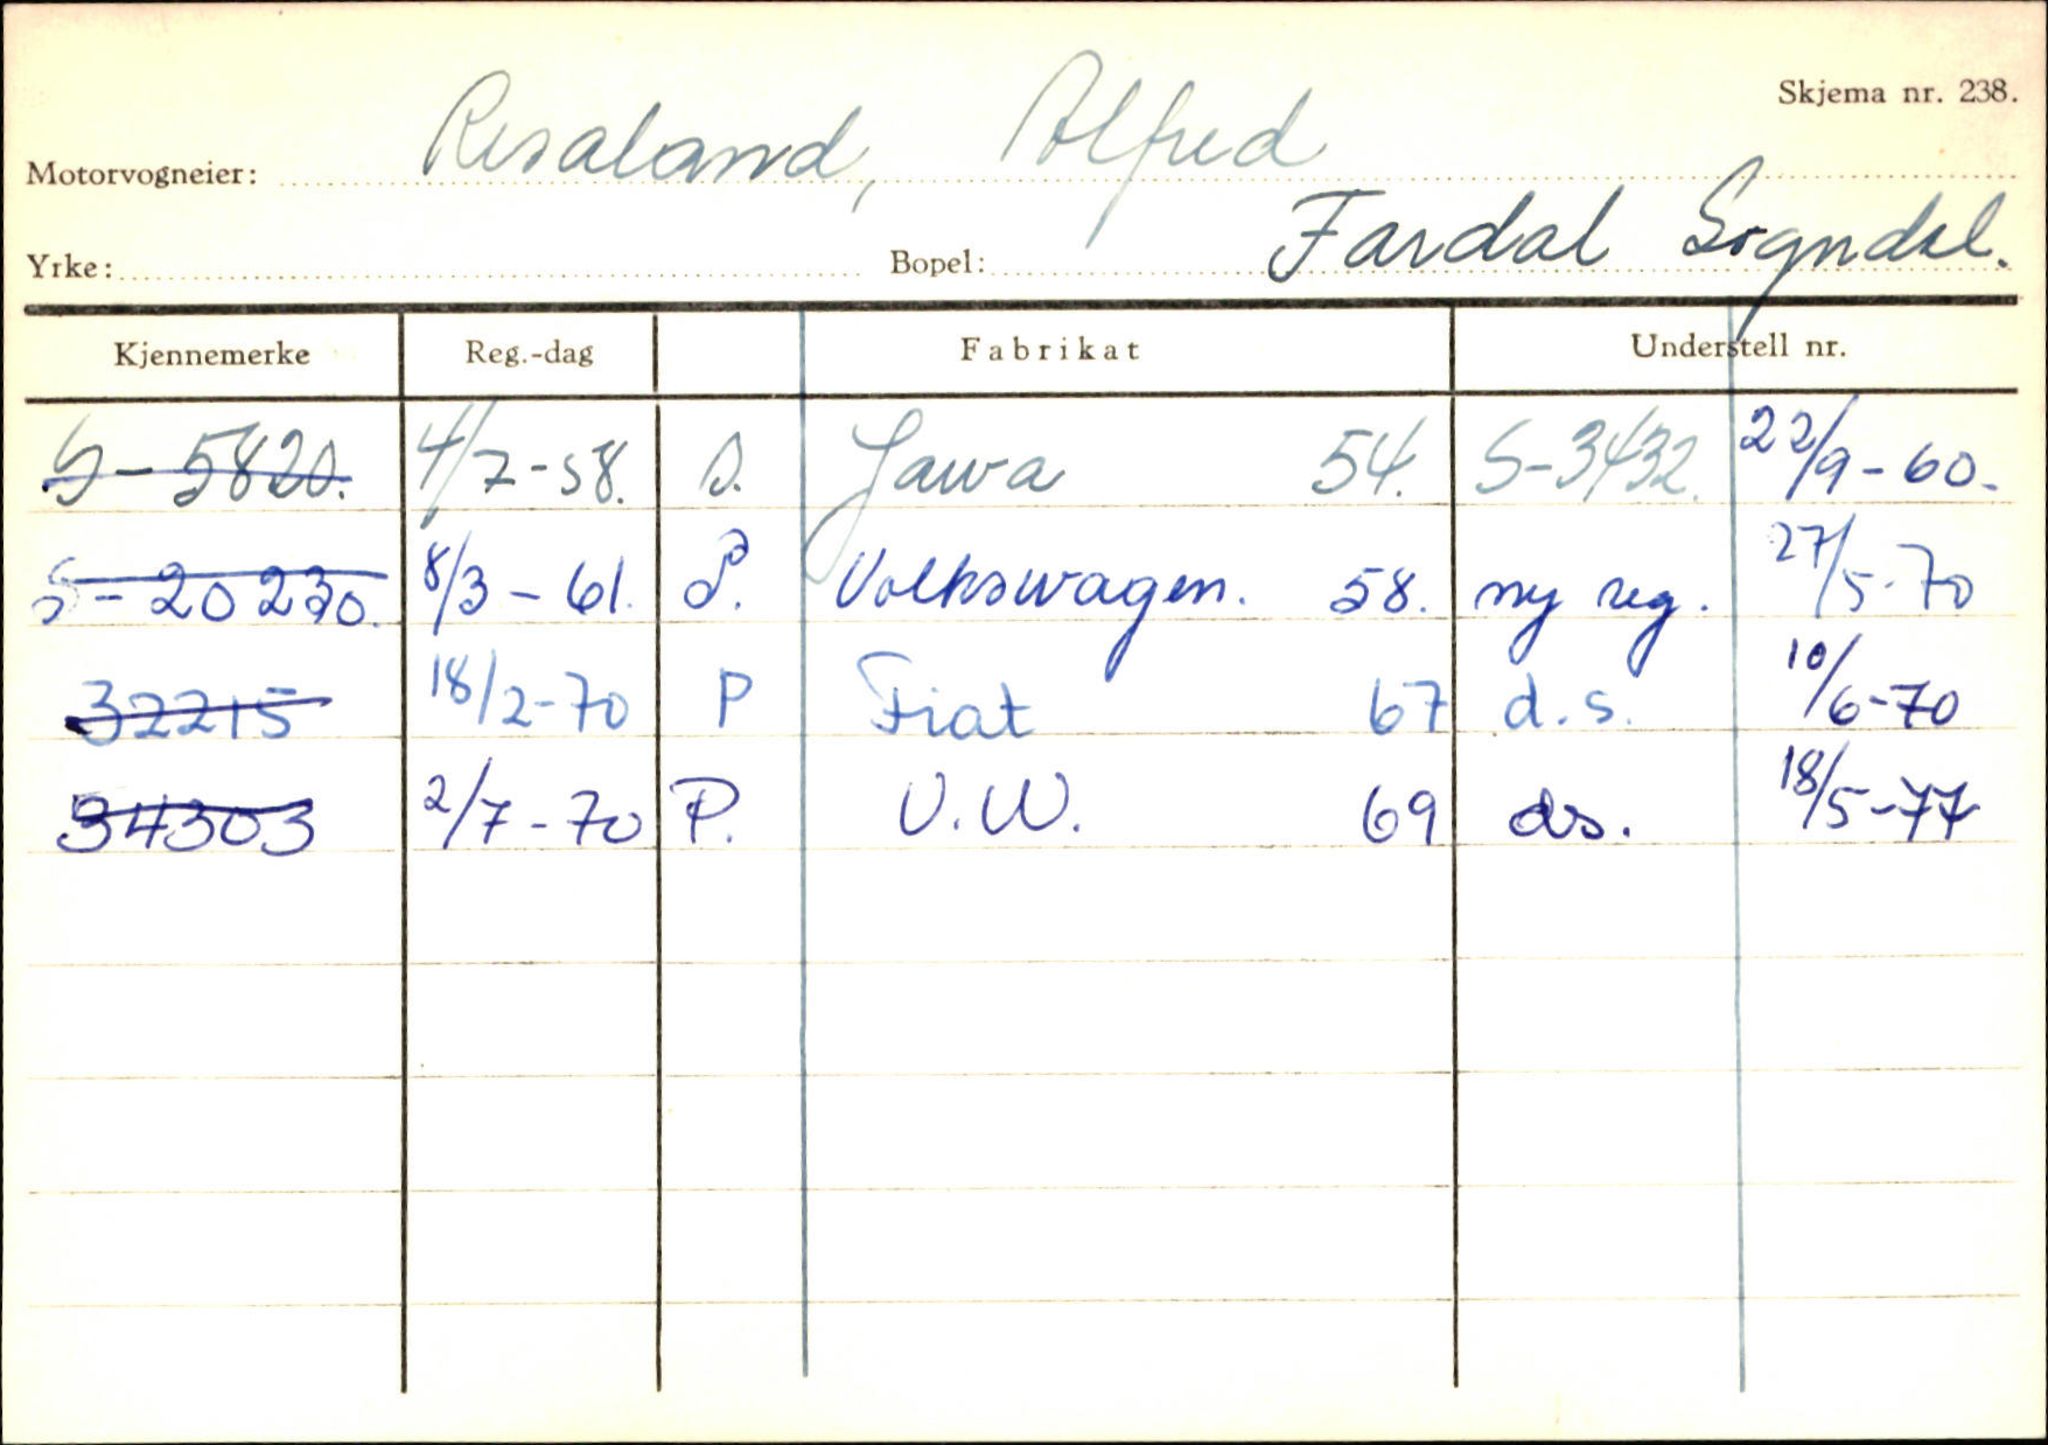 Skjema nr. 238.
Motorvogneier: Risaland, Alfred
Yrke: Bopel: Fardal Sogndal.
Kjennemerke Reg.-dag Fabrikat Understell nr.
S-5820. 4/7-58. S. Jawa 54. S-3432. 22/9-60.
S-20230. 8/3-61. P. Volkswagen. 58. ny reg. 27/5-70
32215 18/2-70 P Fiat 67 d.s. 10/6-70
34303 2/7-70 P. V.W. 69 ds. 18/5-77